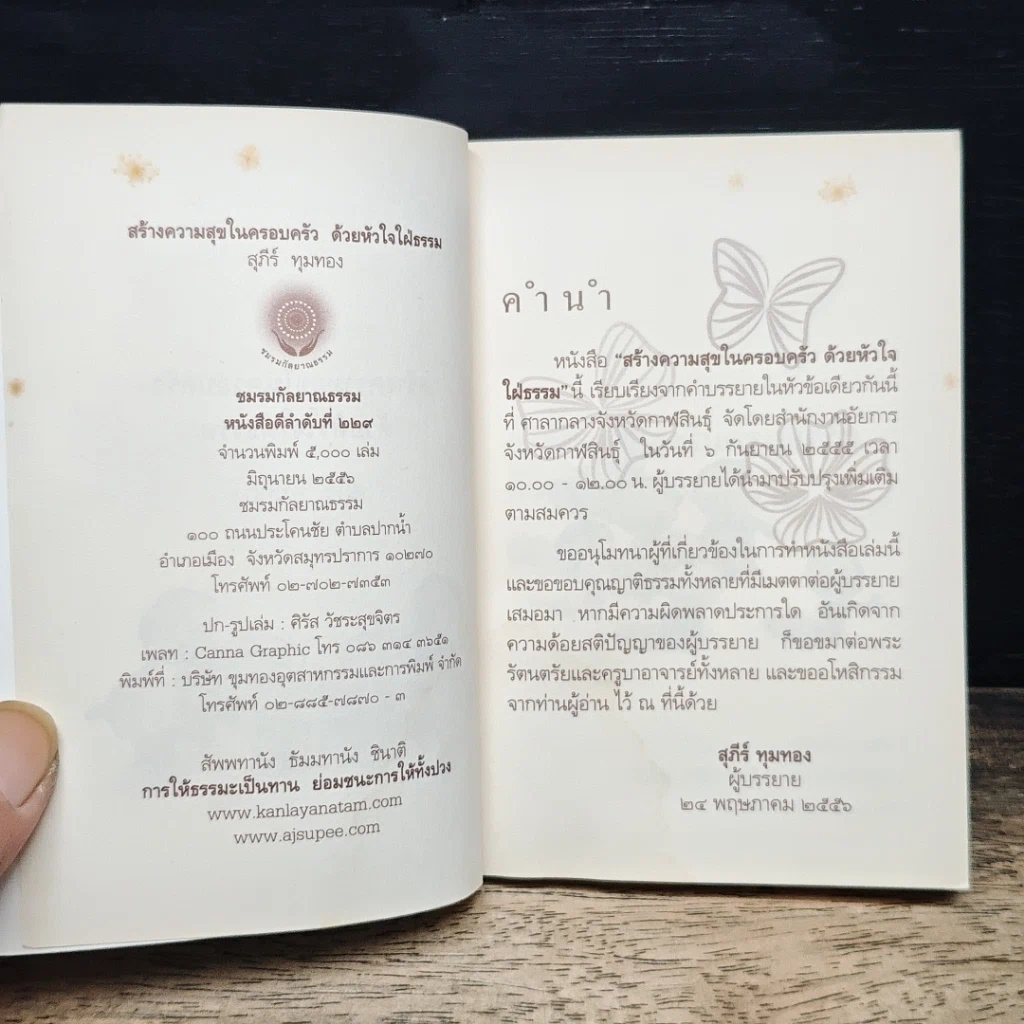 สร้างความสุขในครอบครัว ด้วยหัวใจใฝ่ธรรม
สุภีร์ ทุมทอง
ชมรมกัลยาณธรรม
ชมรมกัลยาณธรรม
หนังสือดีลำดับที่ ๒๒๙
จำนวนพิมพ์ ๕,๐๐๐ เล่ม
มิถุนายน ๒๕๕๖
ชมรมกัลยาณธรรม
๑๐๐ ถนนประโคนชัย ตำบลปากน้ำ
อำเภอเมือง จังหวัดสมุทรปราการ ๑๐๒๗๐
โทรศัพท์ ๐๒-๗๐๒-๗๓๕๓
ปก-รูปเล่ม : ศิรัส วัชระสุขจิตร
เพลท : Canna Graphic โทร ๐๘๖ ๓๑๔ ๓๖๕๑
พิมพ์ที่ : บริษัท ขุมทองอุตสาหกรรมและการพิมพ์ จำกัด
โทรศัพท์ ๐๒-๘๘๕-๗๘๗๐ - ๓
สัพพทานัง ธัมมทานัง ชินาติ
การให้ธรรมะเป็นทาน ย่อมชนะการให้ทั้งปวง
www.kanlayanatam.com
www.ajsupee.com
คำนำ
หนังสือ "สร้างความสุขในครอบครัว ด้วยหัวใจ
ใฝ่ธรรม" นี้ เรียบเรียงจากคำบรรยายในหัวข้อเดียวกันนี้
ที่ ศาลากลางจังหวัดกาฬสินธุ์ จัดโดยสำนักงานอัยการ
จังหวัดกาฬสินธุ์ ในวันที่ ๖ กันยายน ๒๕๕๕ เวลา
๑๐.๐๐ - ๑๒.๐๐ น. ผู้บรรยายได้นำมาปรับปรุงเพิ่มเติม
ตามสมควร
ขออนุโมทนาผู้ที่เกี่ยวข้องในการทำหนังสือเล่มนี้
และขอขอบคุณญาติธรรมทั้งหลายที่มีเมตตาต่อผู้บรรยาย
เสมอมา หากมีความผิดพลาดประการใด อันเกิดจาก
ความด้อยสติปัญญาของผู้บรรยาย ก็ขอขมาต่อพระ
รัตนตรัยและครูบาอาจารย์ทั้งหลาย และขออโหสิกรรม
จากท่านผู้อ่าน ไว้ ณ ที่นี้ด้วย
สุภีร์ ทุมทอง
ผู้บรรยาย
๒๔ พฤษภาคม ๒๕๕๖